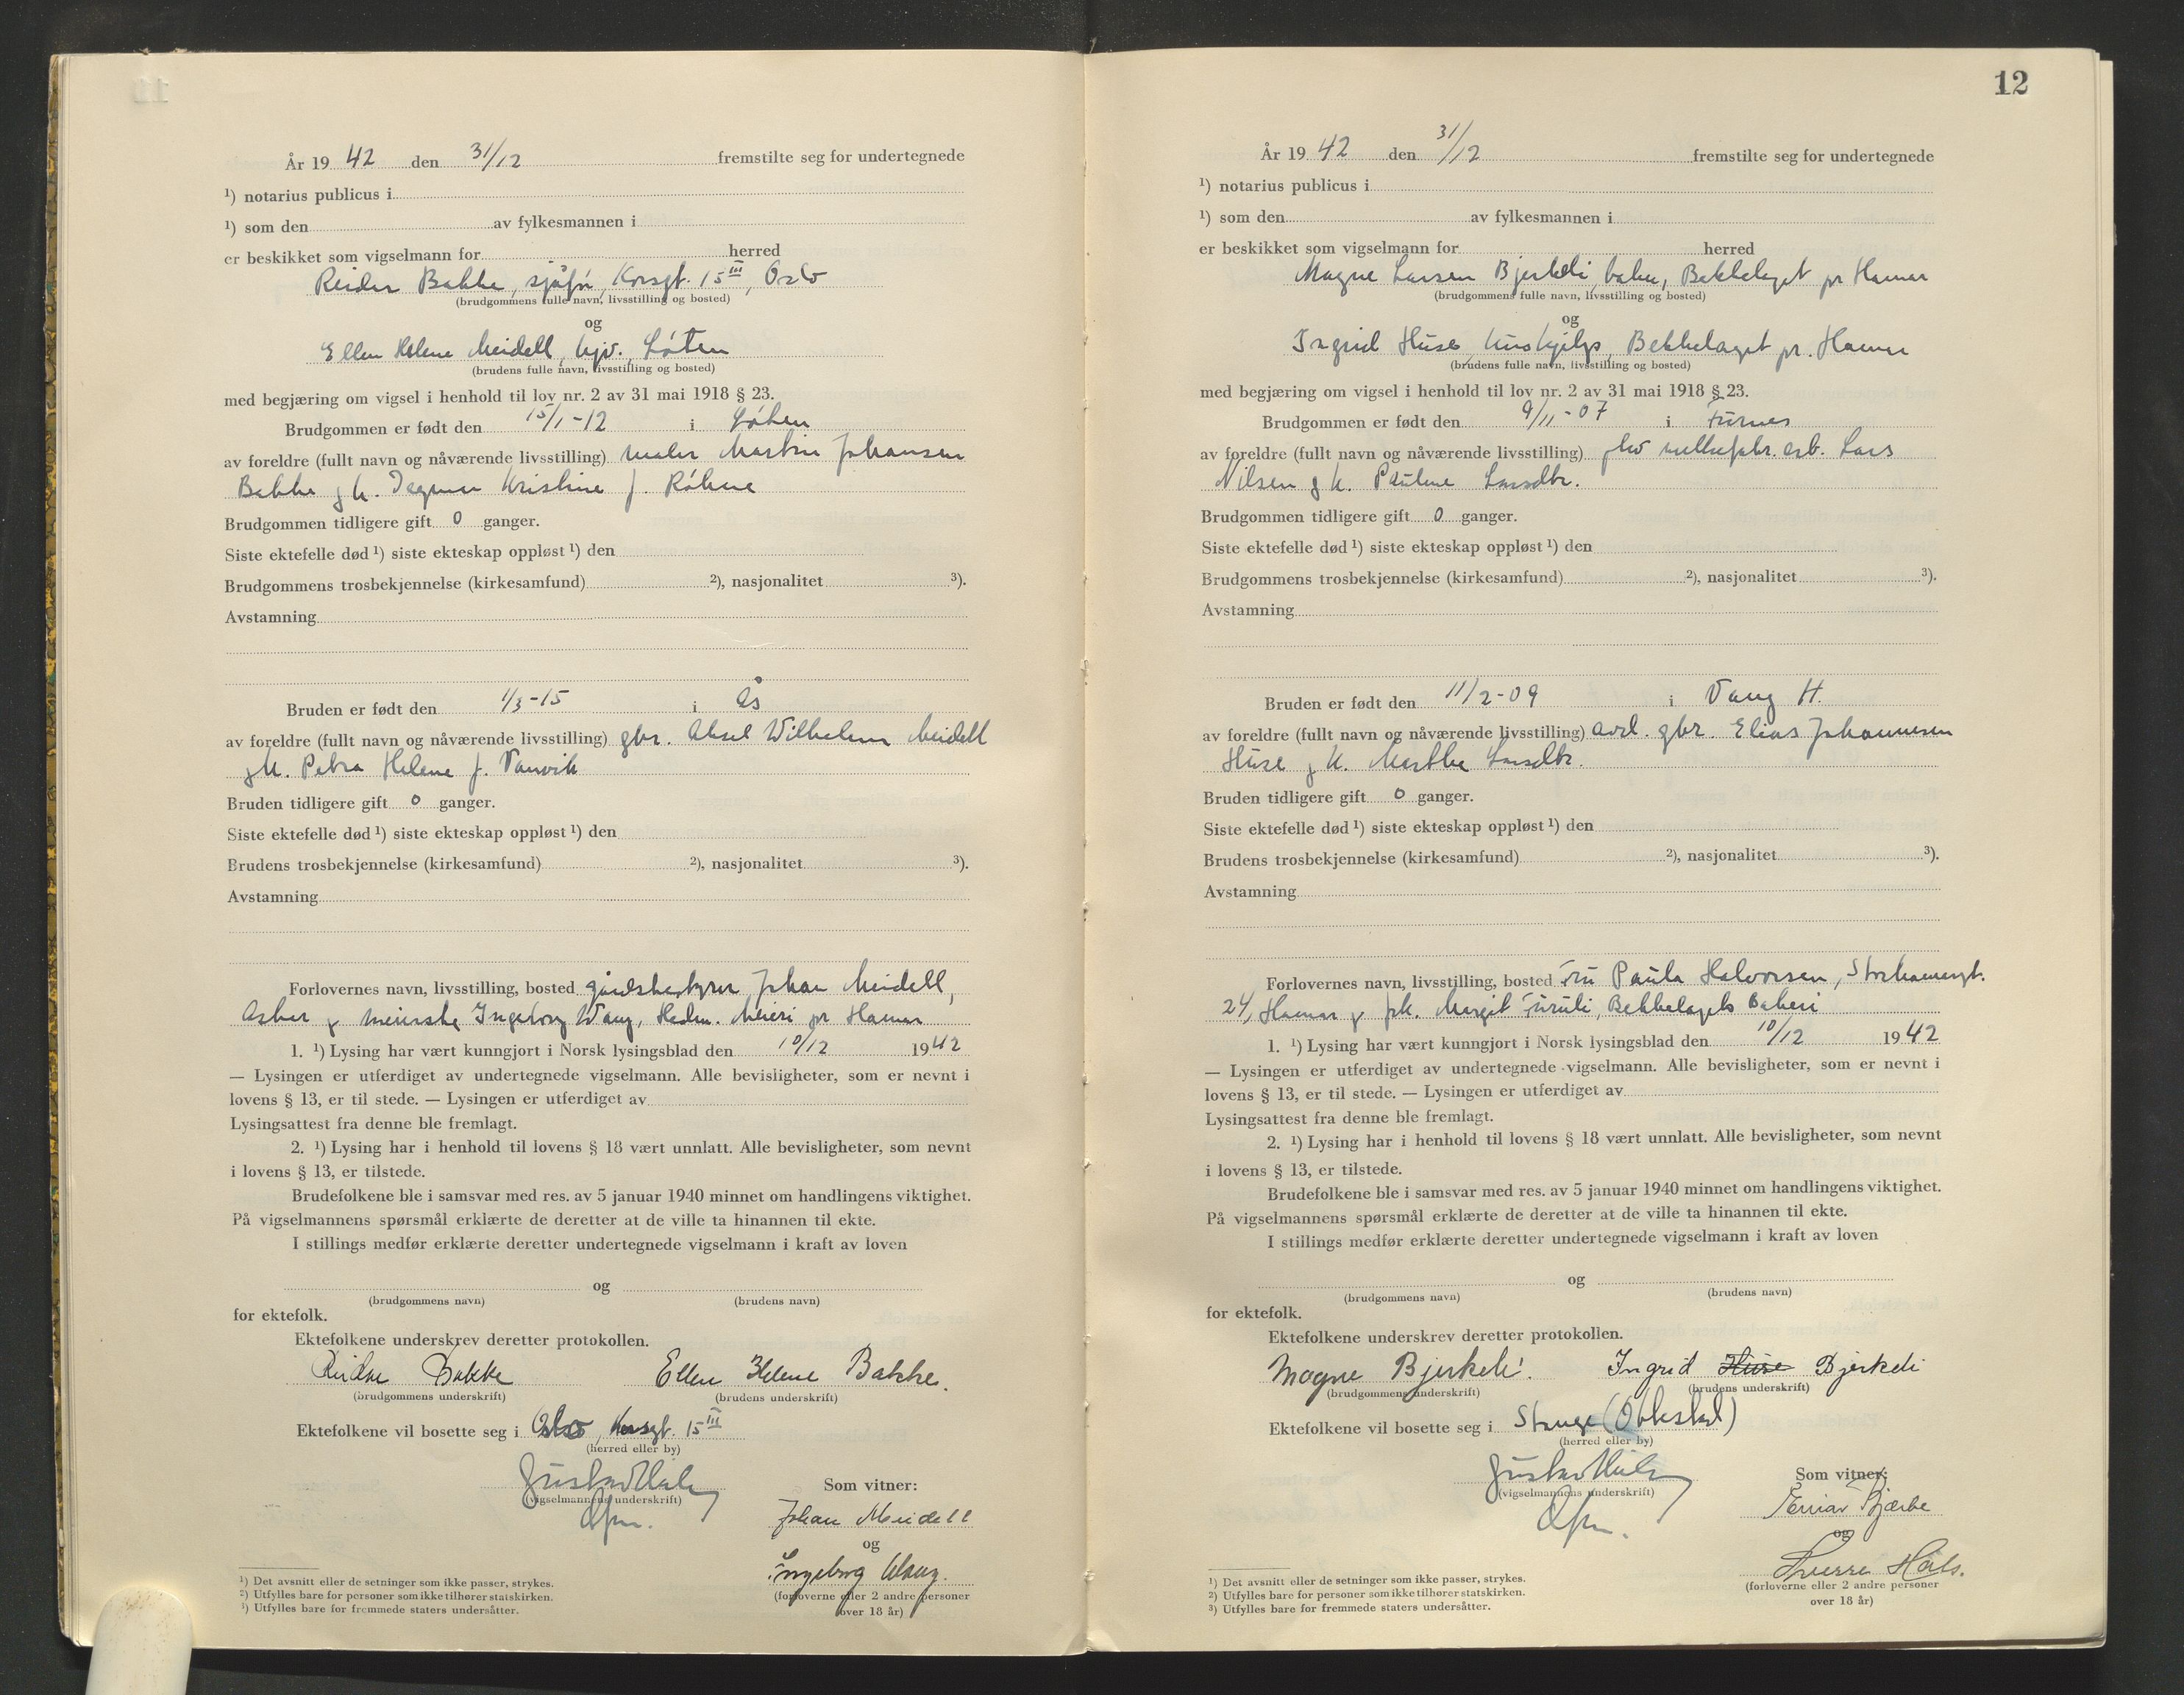 År 19 42 den 31/12 fremstilte seg for undertegnede
¹) notarius publicus i
¹) som den av fylkesmannen i
er beskikket som vigselmann for herred
Reidar Bakke, sjåfør, Korsgt. 15 III, Oslo
(brudgommens fulle navn, livsstilling og bosted)
og
Ellen Helene Meidell, hjv., Løten
(brudens fulle navn, livsstilling og bosted)
med begjæring om vigsel i henhold til lov nr. 2 av 31 mai 1918 § 23.
Brudgommen er født den 15/1-12 i Løten
av foreldre (fullt navn og nåværende livsstilling) maler Martin Johansen
Bakke g h. Dagmar Kristine f. Røhne
Brudgommen tidligere gift 0 ganger.
Siste ektefelle død ¹) siste ekteskap oppløst ¹) den
Brudgommens trosbekjennelse (kirkesamfund) ²), nasjonalitet ³).
Avstamning
Bruden er født den 1/3-15 i Ås
av foreldre (fullt navn og nåværende livsstilling) gbr. Aksel Wilhelm Meidell
g h. Petra Helene f. Vanvik
Bruden tidligere gift 0 ganger.
Siste ektefelle død ¹) siste ekteskap oppløst ¹) den
Brudens trosbekjennelse (kirkesamfund) ²), nasjonalitet ³).
Avstamning
Forlovernes navn, livsstilling, bosted gårdsbestyrer Johan Meidell,
Asker g meierske Ingeborg Wang, Hedm. Meieri pr Hamar
1. ¹) Lysing har vært kunngjort i Norsk lysingsblad den 10/12 1942
— Lysingen er utferdiget av undertegnede vigselmann. Alle bevisligheter, som er nevnt i
lovens § 13, er til stede. — Lysingen er utferdiget av
Lysingsattest fra denne ble fremlagt.
2. ¹) Lysing har i henhold til lovens § 18 vært unnlatt. Alle bevisligheter, som nevnt
i lovens § 13, er tilstede.
Brudefolkene ble i samsvar med res. av 5 januar 1940 minnet om handlingens viktighet.
På vigselmannens spørsmål erklærte de deretter at de ville ta hinannen til ekte.
I stillings medfør erklærte deretter undertegnede vigselmann i kraft av loven
og
(brudgommens navn) (brudens navn)
for ektefolk.
Ektefolkene underskrev deretter protokollen.
Reidar Bakke Ellen Helene Bakke.
(brudgommens underskrift) (brudens underskrift)
Ektefolkene vil bosette seg i Oslo, Korsgt. 15 III
(herred eller by)
(vigselmannens underskrift)
Som vitner:
Johan Meidell
og
Ingeborg Wang.
(forloverne eller 2 andre personer
over 18 år)
¹) Det avsnitt eller de setninger som ikke passer, strykes.
²) Utfylles bare for personer som ikke tilhører statskirken.
³) Utfylles bare for fremmede staters undersåtter.
12
År 19 42 den 31/12 fremstilte seg for undertegnede
¹) notarius publicus i
¹) som den av fylkesmannen i
er beskikket som vigselmann for herred
Magne Larsen Bjerkeli, baker, Bekkelaget pr Hamar
(brudgommens fulle navn, livsstilling og bosted)
og
Ingrid Huse, hushjelp, Bekkelaget pr. Hamar
(brudens fulle navn, livsstilling og bosted)
med begjæring om vigsel i henhold til lov nr. 2 av 31 mai 1918 § 23.
Brudgommen er født den 9/11-07 i Furnes
av foreldre (fullt navn og nåværende livsstilling) fhv melkefabr. arb. Lars
Nilsen g h. Pauline Larsdtr.
Brudgommen tidligere gift 0 ganger.
Siste ektefelle død ¹) siste ekteskap oppløst ¹) den
Brudgommens trosbekjennelse (kirkesamfund) ²), nasjonalitet ³).
Avstamning
Bruden er født den 11/2-09 i Vang H.
av foreldre (fullt navn og nåværende livsstilling) avd. gbr. Elias Johannesen
Huse g h. Marthe Larsdtr.
Bruden tidligere gift 0 ganger.
Siste ektefelle død ¹) siste ekteskap oppløst ¹) den
Brudens trosbekjennelse (kirkesamfund) ²), nasjonalitet ³).
Avstamning
Forlovernes navn, livsstilling, bosted Fru Paula Halvorsen, Storhamargt.
24, Hamar g frk. Margit Furuli, Bekkelagets Bakeri
1. ¹) Lysing har vært kunngjort i Norsk lysingsblad den 10/12 1942
— Lysingen er utferdiget av undertegnede vigselmann. Alle bevisligheter, som er nevnt i
lovens § 13, er til stede. — Lysingen er utferdiget av
Lysingsattest fra denne ble fremlagt.
2. ¹) Lysing har i henhold til lovens § 18 vært unnlatt. Alle bevisligheter, som nevnt
i lovens § 13, er tilstede.
Brudefolkene ble i samsvar med res. av 5 januar 1940 minnet om handlingens viktighet.
På vigselmannens spørsmål erklærte de deretter at de ville ta hinannen til ekte.
I stillings medfør erklærte deretter undertegnede vigselmann i kraft av loven
og
(brudgommens navn) (brudens navn)
for ektefolk.
Ektefolkene underskrev deretter protokollen.
Magne Bjerkeli. Ingrid Huse Bjerkeli
(brudgommens underskrift) (brudens underskrift)
Ektefolkene vil bosette seg i Stange (Ottestad)
(herred eller by)
(vigselmannens underskrift)
Som vitner:
Einar Bjærke
og
Sverre Hals.
(forloverne eller 2 andre personer
over 18 år)
¹) Det avsnitt eller de setninger som ikke passer, strykes.
²) Utfylles bare for personer som ikke tilhører statskirken.
³) Utfylles bare for fremmede staters undersåtter.